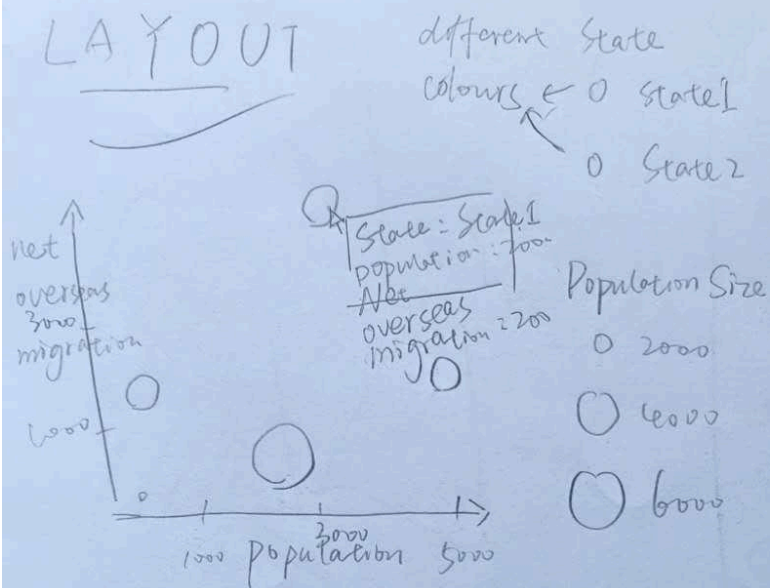 LAYOUT
different State
colours ← O State1
O State2
net
overseas
3000
migration
1000
State: State1
population:
Net
overseas
migration=200
Population Size
O 2000
O 4000
O 6000
0
1000
3000
5000
population